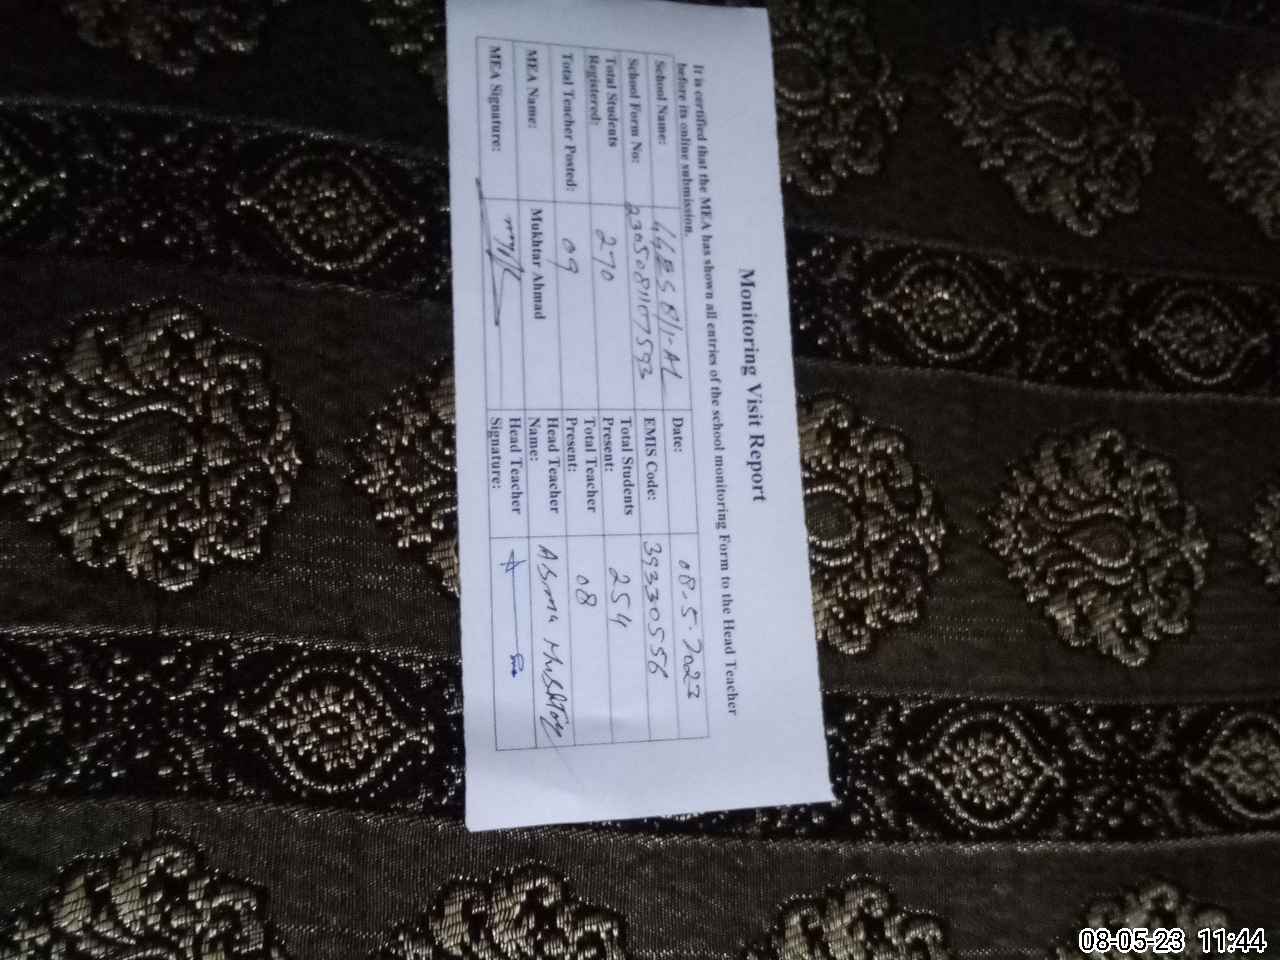 Monitoring Visit Report
It is certified that the MEA has shown all entries of the school monitoring Form to the Head Teacher
before its online submission.
School Name: Date: 08.5.2023
School Form No: 230508110757593 EMIS Code: 39330556
Total Students Registered: 270 Total Students Present: 254
Total Teacher Posted: 09 Total Teacher Present: 08
MEA Name: Mukhtar Ahmad Head Teacher Name: Asma Mushtaq
MEA Signature: Head Teacher Signature:
08-05-23 11:44